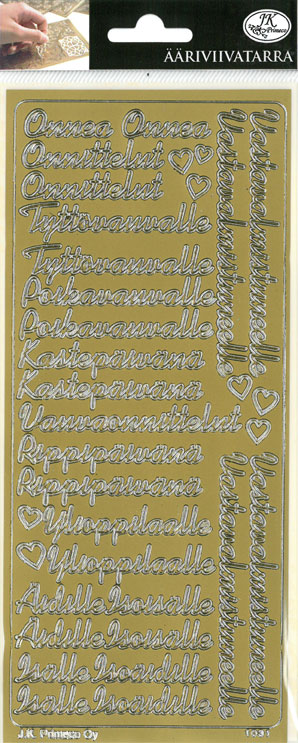 J.K. Primeco
ÄÄRIVIIVATARRA
Onnea Onnea
Onnittelut
Onnittelut
Tyttövauvalle
Tyttövauvalle
Poikavauvalle
Poikavauvalle
Kastepäivänä
Kastepäivänä
Vauvaonnittelut
Rippipäivänä
Rippipäivänä
Ylioppilaalle
Ylioppilaalle
Äidille Isoisälle
Äidille Isoisälle
Isälle Isoäidille
Isälle Isoäidille
Vastavalmistuneelle
Vastavalmistuneelle
Vastavalmistuneelle
Vastavalmistuneelle
J.K. Primeco Oy